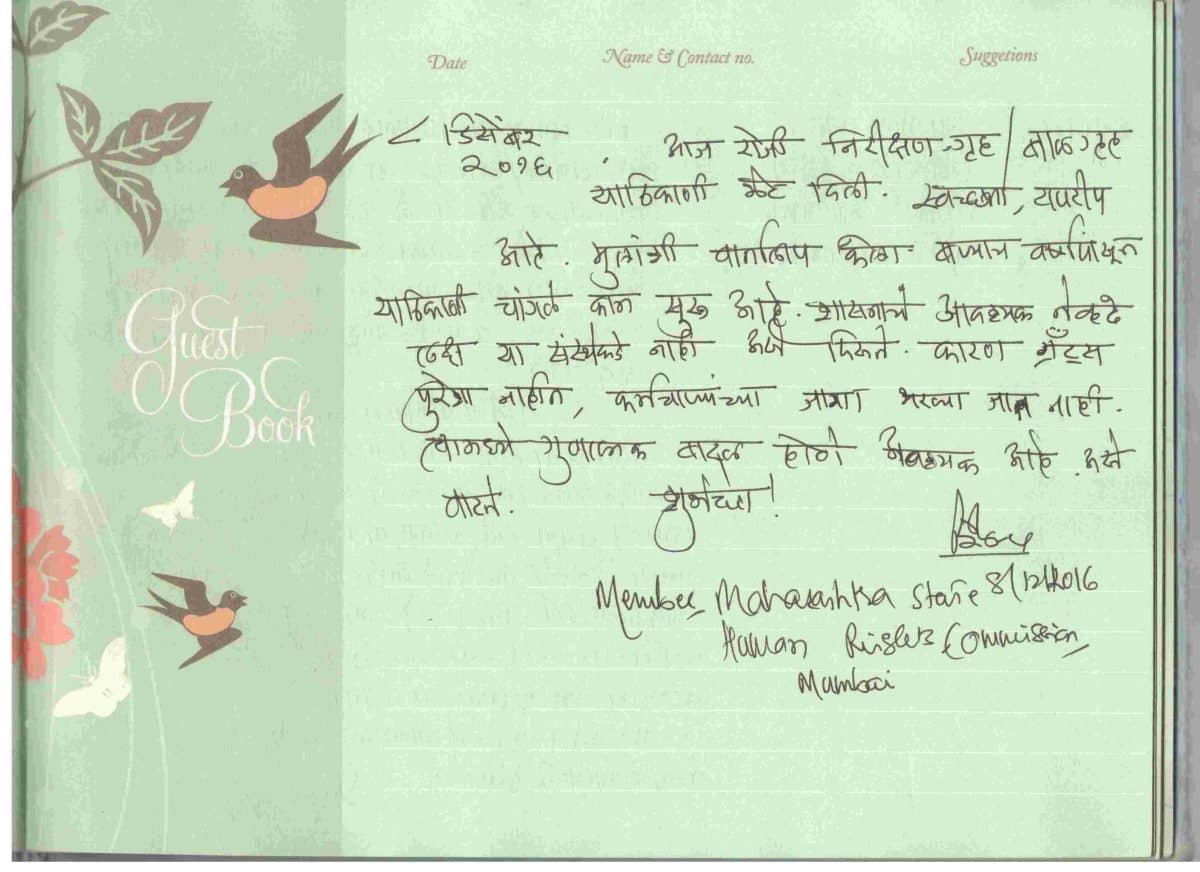 Guest
Book
Date Name & Contact no. Suggetions
८ डिसेंबर
२०१६
आज रोजी निरीक्षण-गृह / बाळगृह
याठिकाणी भेट दिली. स्वच्छता, टापटीप
आहे. मुलांशी वार्तालाप केला बऱ्याच वर्षापासून
याठिकाणी चांगले काम सुरू आहे. शासनाचे आवश्यक तेवढे
लक्ष या संस्थेकडे नाही असे दिसते. कारण ग्रँट्स
पुरेशा नाहीत, कर्मचाऱ्यांच्या जागा भरल्या जात नाही.
त्यामध्ये गुणात्मक बादल होणे आवश्यक आहे. असे
वाटते. शुभेच्छा!
8/12/2016
Member, Maharashtra State
Human Rights Commission
Mumbai